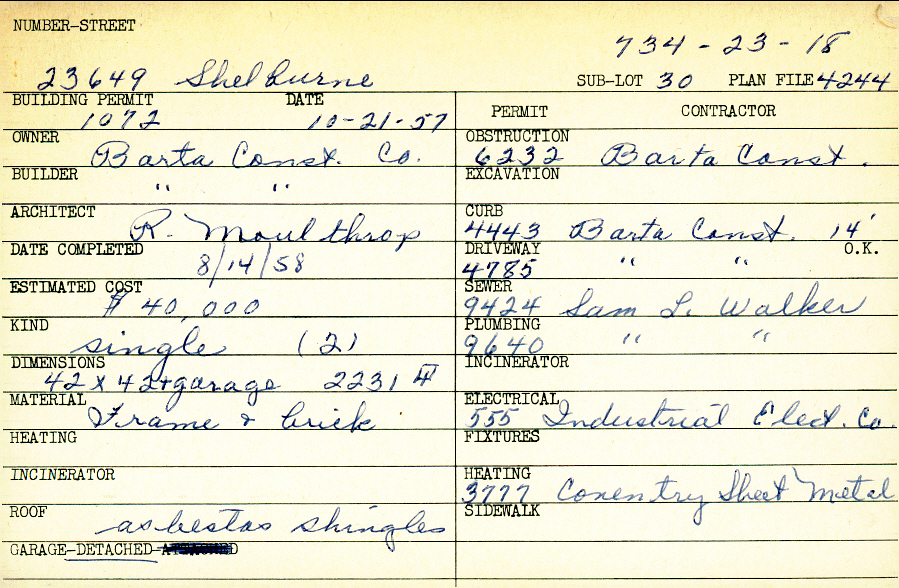 NUMBER-STREET
734-23-18
23649 Shelburne
SUB-LOT 30 PLAN FILE 4244
BUILDING PERMIT DATE
1072 10-21-57
PERMIT CONTRACTOR
OWNER
Barta Const. Co.
OBSTRUCTION
6232 Barta Const.
BUILDER
" "
EXCAVATION
ARCHITECT
R. Moulthrop
CURB
4443 Barta Const. 14'
DATE COMPLETED
8/14/58
DRIVEWAY O.K.
4785 " "
ESTIMATED COST
$ 40,000
SEWER
9424 Sam L. Walker
KIND
single (2)
PLUMBING
9640 " "
DIMENSIONS
42 x 42 + garage 2231
INCINERATOR
MATERIAL
Frame & brick
ELECTRICAL
555 Industrial Elect. Co.
HEATING
FIXTURES
INCINERATOR
HEATING
3777 Conentry Sheet Metal
ROOF
asbestas shingles
SIDEWALK
GARAGE-DETACHED-